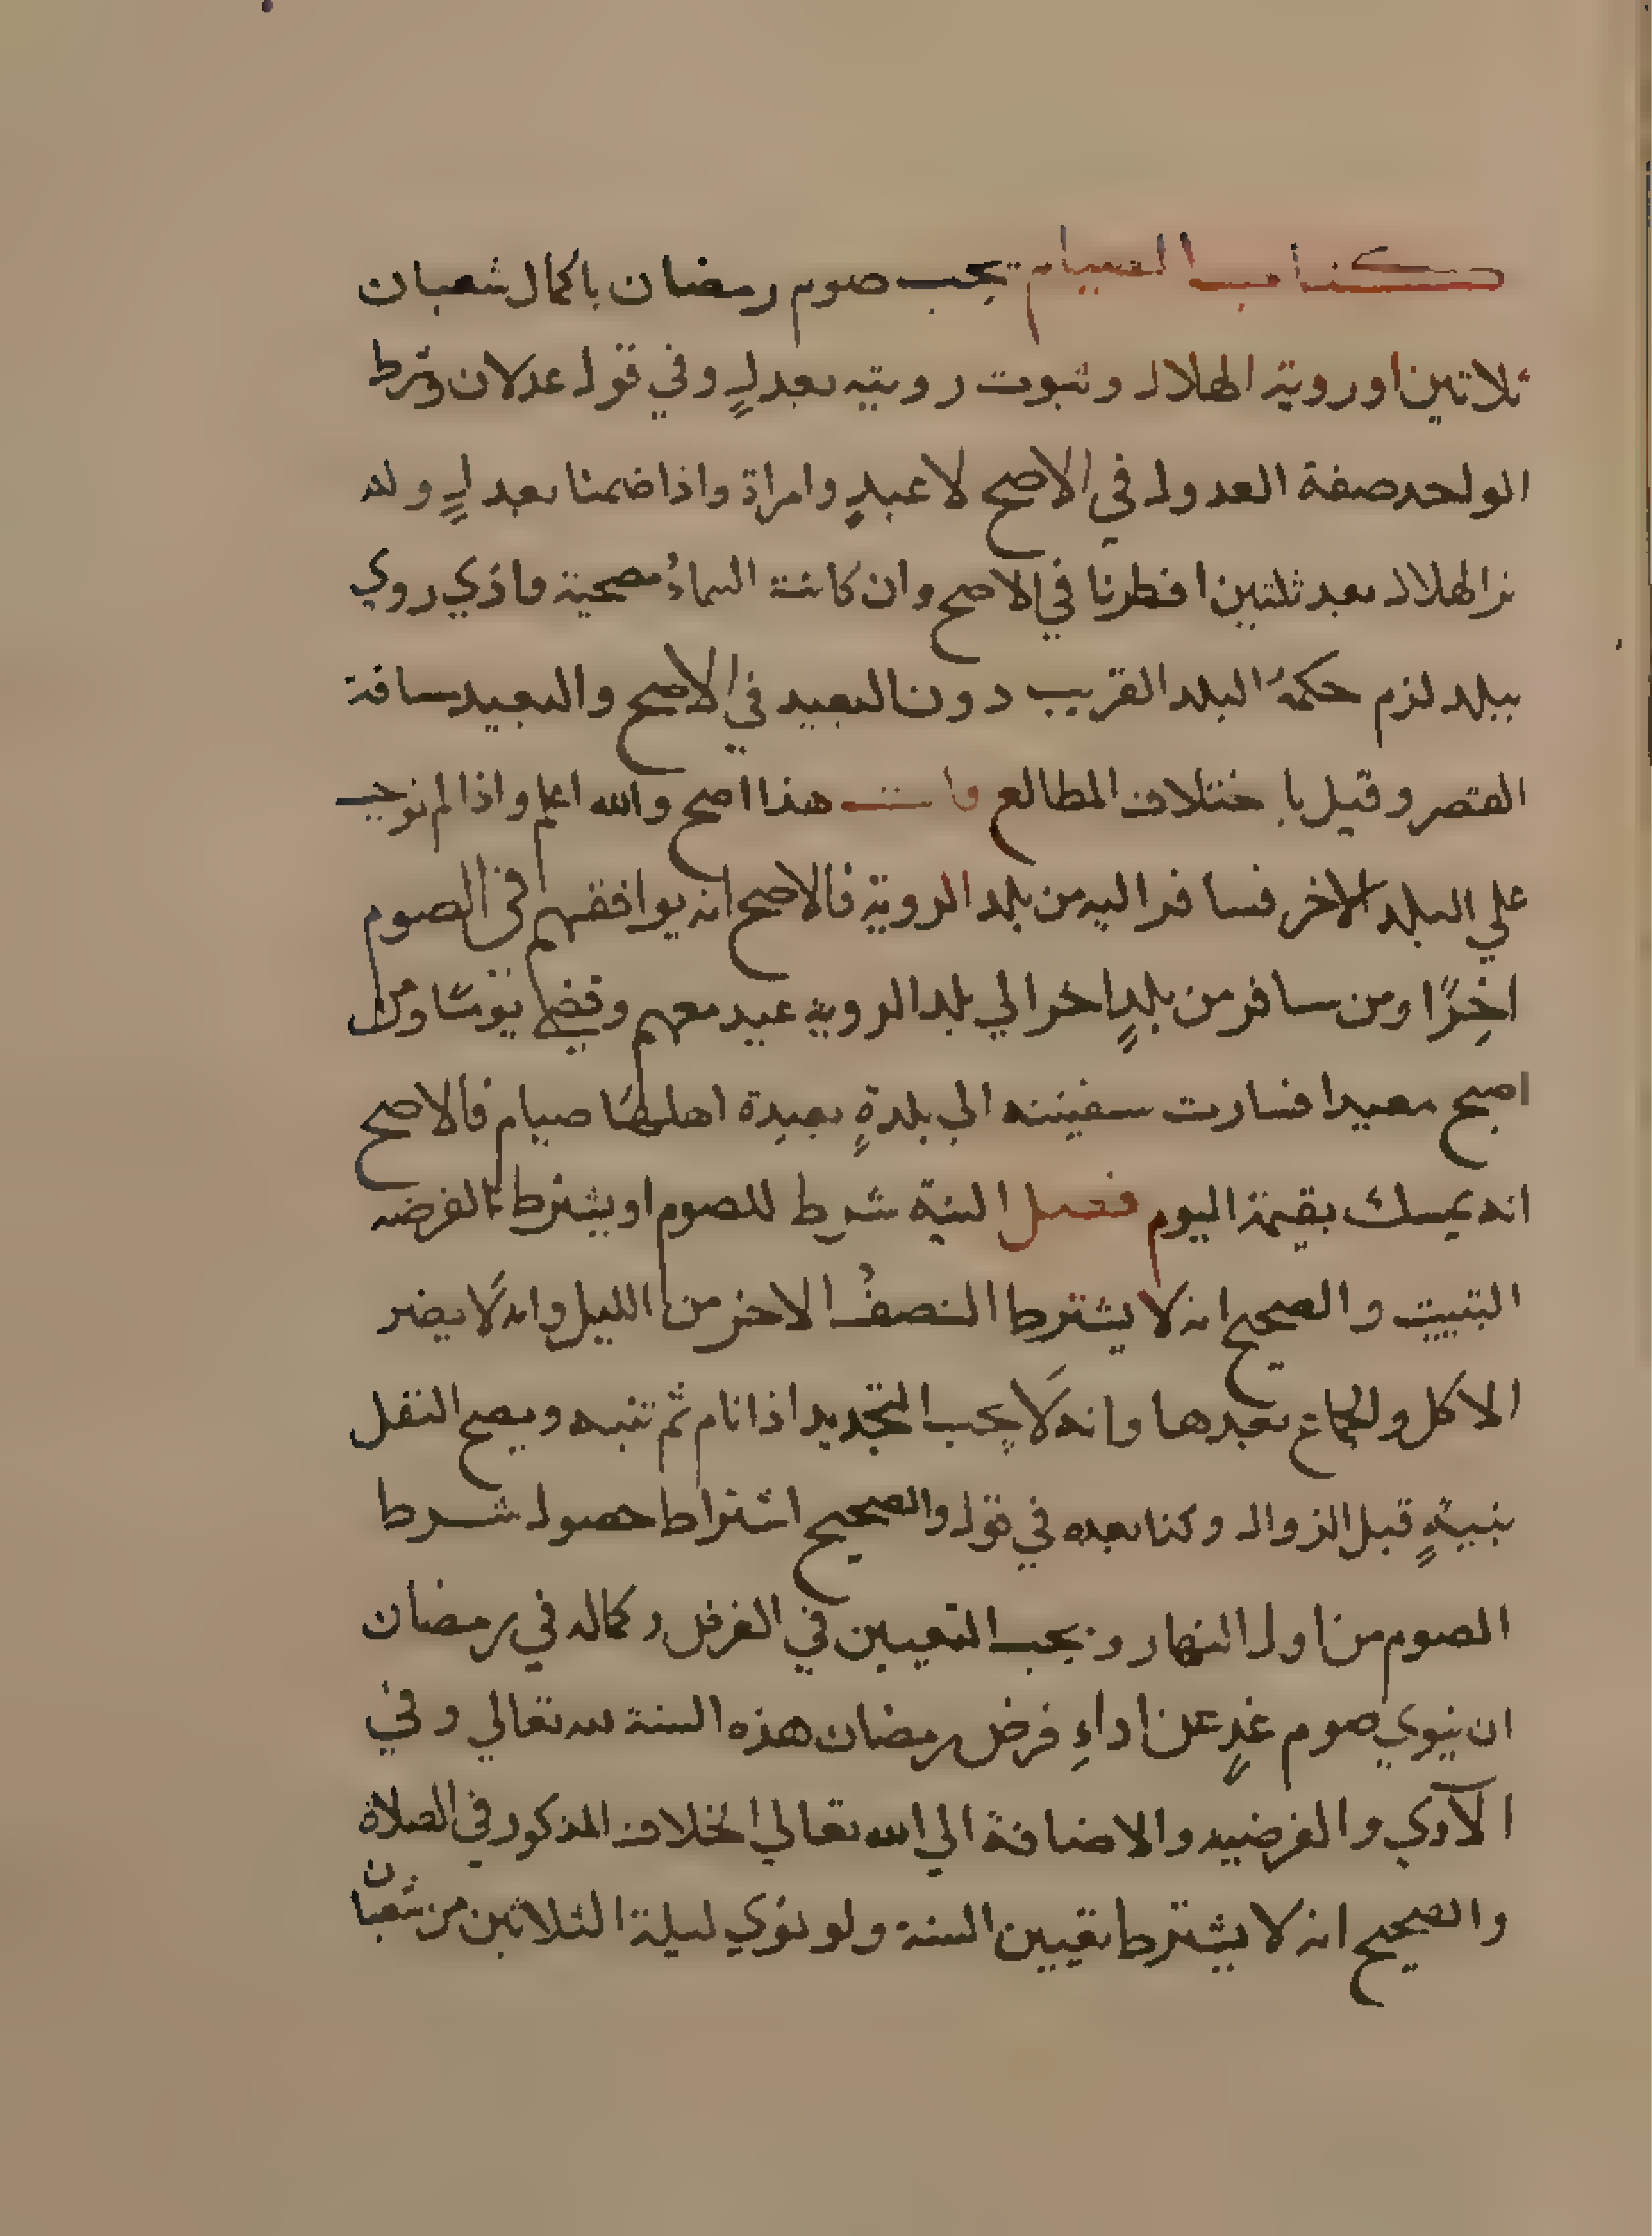 كتاب الصيام يجب صوم رمضان باكمال شعبان
ثلاثين او روية الهلال وثبوت رويته بعدلٍ وفي قول عدلان وشرط
الواحد صفة العدول في الاصح لا عبدٍ وامراة واذا ضمنا بعدلٍ ولم
نر الهلال بعد ثلثين افطرنا في الاصح وان كانت السماءُ مصحية واذي روي
ببلد لزم حكمهُ البلد القريب دون البعيد في الاصح والبعيد مسافة
القصر وقيل باختلاف المطالع قلت هذا اصح والله اعلم واذا لم نوجب
علي البلد الاخر فسافر اليه من بلد الروية فالاصح انه يوافقهم في الصوم
اخِرًا ومن سافر من بلدٍ اخر الي بلد الروية عيد معهم وقضي يومًا ومن
اصبح معيدا فسارت سفينته الي بلدةٍ بعيدة اهلهَا صيام فالاصح
انه يمسك بقية اليوم فصل النية شرط للصوم او يشترط لفرضه
التبييت والصحيح انه لا يشترط النصفُ الاخر من الليل وانه لَا يضر
الاكل والجماع بعدها وانه لَا يجب التجديد اذا نام ثم تنبه ويصح النفل
بنيةٍ قبل الزوال وكذا بعده في قول والصحيح اشتراط حصول شرط
الصوم من اول النهار ويجب التعيين في الفرض وكماله في رمضان
ان ينوي صوم غدٍ عن اداءِ فرض رمضان هذه السنة لله تعالي وفي
الآدي والفرضيه والاضافة الي الله تعالي الخلاف المذكور في الصلاة
والصحيح انه لا يشترط تعيين السنة ولو نوي ليلة الثلاثين من شعبان